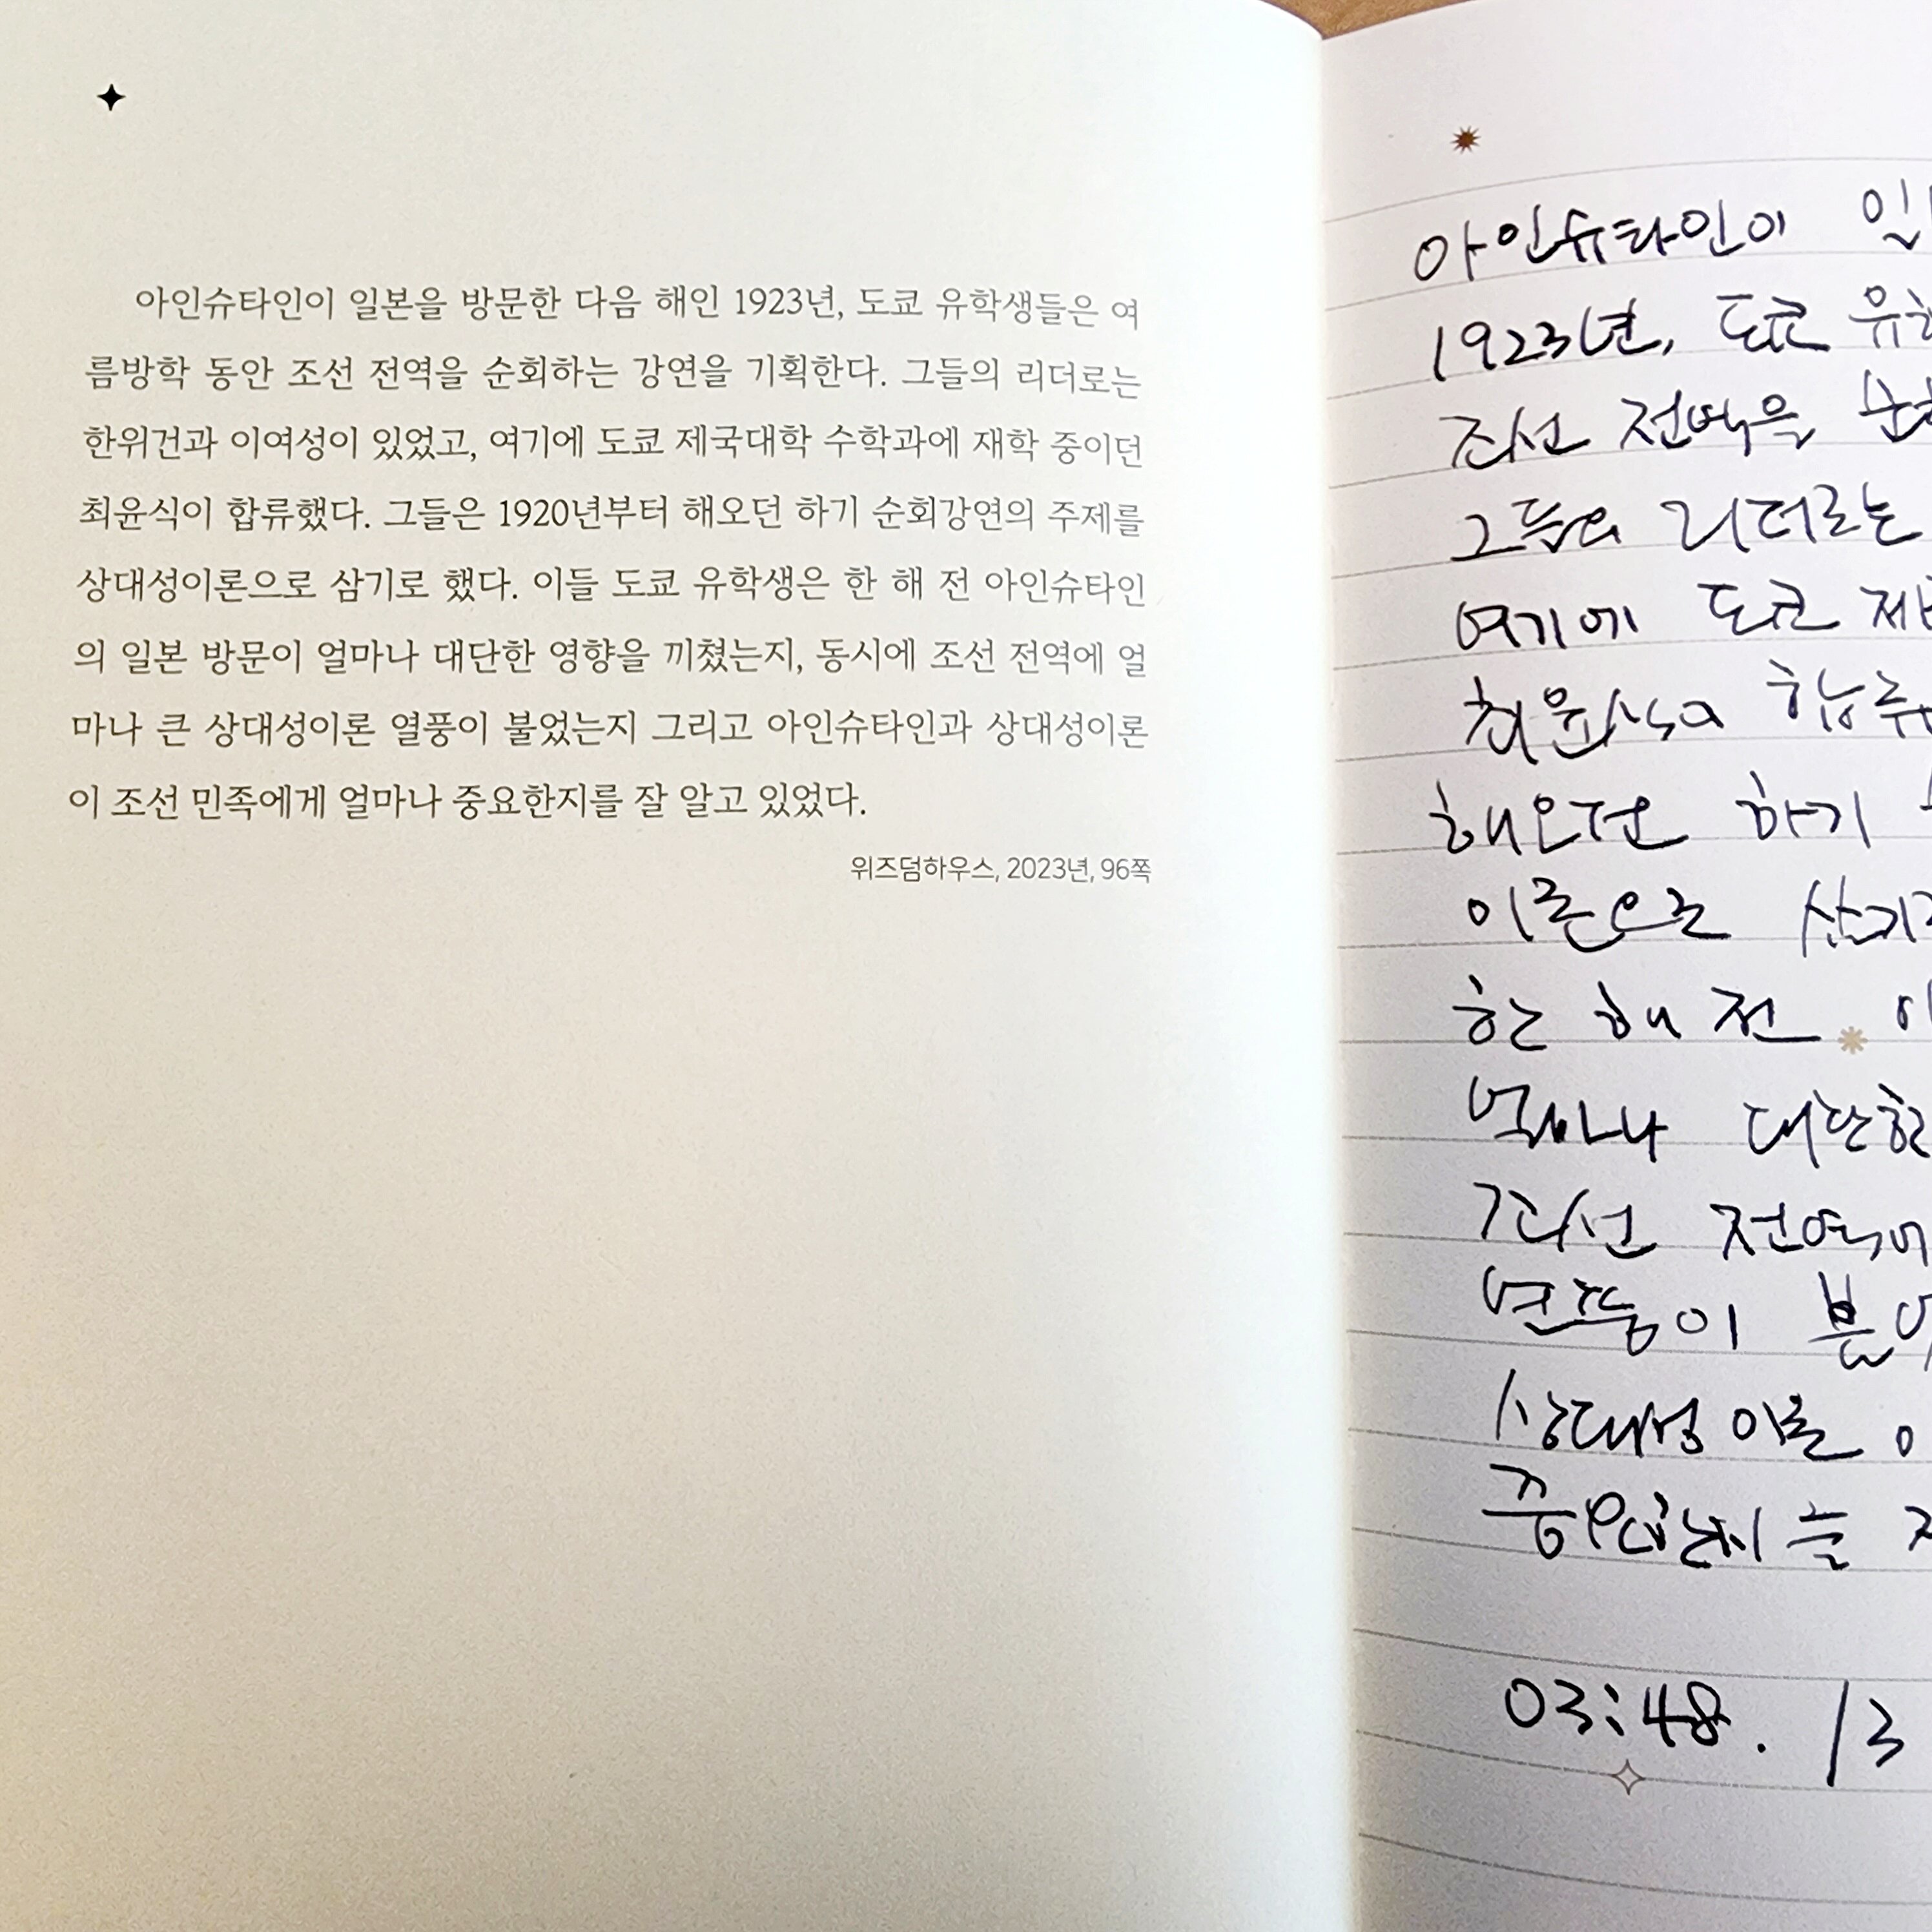 아인슈타인이 일본을 방문한 다음 해인 1923년, 도쿄 유학생들은 여
름방학 동안 조선 전역을 순회하는 강연을 기획한다. 그들의 리더로는
한위건과 이여성이 있었고, 여기에 도쿄 제국대학 수학과에 재학 중이던
최윤식이 합류했다. 그들은 1920년부터 해오던 하기 순회강연의 주제를
상대성이론으로 삼기로 했다. 이들 도쿄 유학생은 한 해 전 아인슈타인
의 일본 방문이 얼마나 대단한 영향을 끼쳤는지, 동시에 조선 전역에 얼
마나 큰 상대성이론 열풍이 불었는지 그리고 아인슈타인과 상대성이론
이 조선 민족에게 얼마나 중요한지를 잘 알고 있었다.
위즈덤하우스, 2023년, 96쪽
아인슈타인이
1923년, 도쿄 유학
조선 전역을 순회
그들의 리더로는
여기에 도쿄 제
최윤식이 합류
해오던 하기
이론으로 삼기
한 해 전
얼마나 대단한
조선 전역에
열풍이 불
상대성이론
중요한지를
03:48. 13